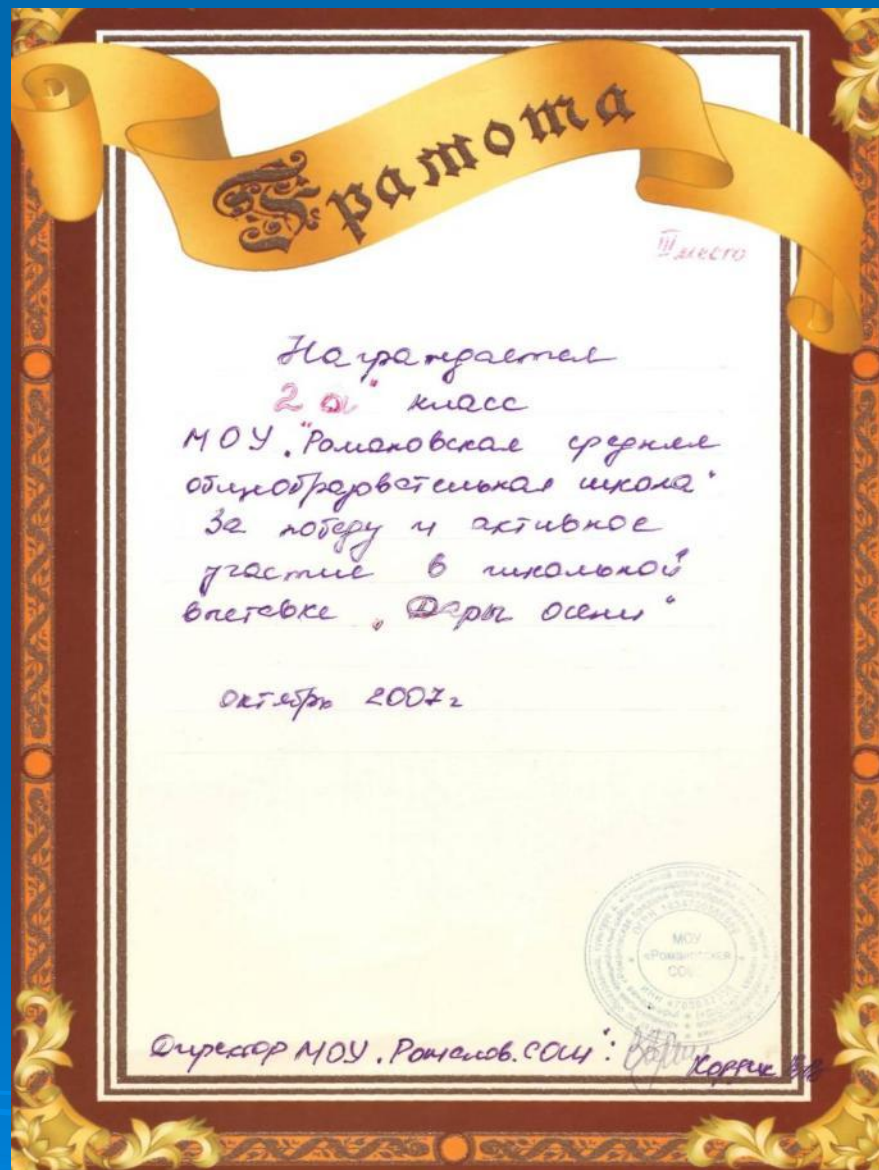 Грамота
III место
Награждается
2 а" класс
МОУ "Романовская средняя
общеобразовательная школа"
За победу и активное
участие в школьной
выставке „Дары осени"
октябрь 2007г
МОУ
«Романовская
СОШ»
Директор МОУ „Романов. СОШ":